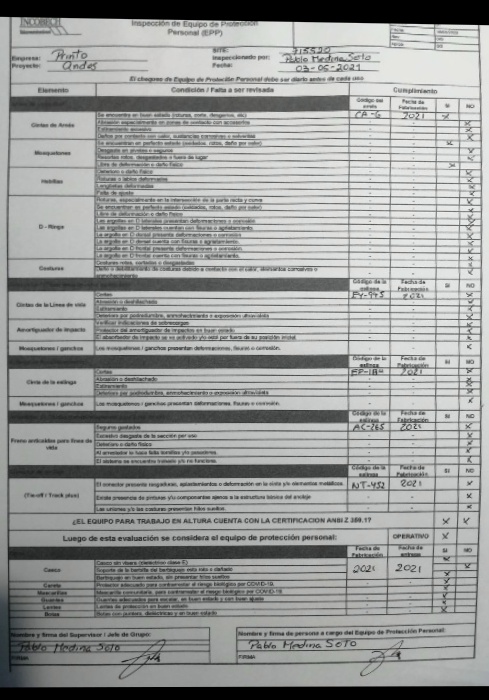 INCOBECH
Inspección de Equipo de Protección
Personal (EPP)
Empresa: Pinto
Proyecto: Andes
SITE: 715520
Inspeccionado por: Pablo Medina Soto
Fecha: 03-05-2021
El chequeo de Equipo de Protección Personal debe ser diario antes de cada uso
Elemento Condición / Falta a ser revisada Cumplimiento
Código del arnés Fecha de Fabricación SI NO
Cintas de Arnés
Se encuentra en buen estado (roturas, corte, desgarros, etc) CA-6 2021 X
Abrasión especialmente en zonas de contacto con accesorios X
Estiramiento excesivo X
Daños por contacto con calor, sustancias corrosivas o solventes X
Mosquetones
Se encuentran en perfecto estado (oxidados, rotos, daño por calor) X
Desgaste en pivotes o seguros X
Resortes rotos, desgastados o fuera de lugar X
Hebillas
Libre de deformación o daño físico X
Deterioro o daño físico X
Roturas o labios deformados X
Lengüetas deformadas X
Falta de ajuste X
D - Rings
Roturas, especialmente en la intersección de la parte recta y curva X
Se encuentran en perfecto estado (oxidados, rotos, daño por calor) X
Libre de deformación o daño físico X
Las argollas en D laterales presentan deformaciones o corrosión X
Las argollas en D laterales cuentan con fisuras o agrietamiento. X
La argolla en D dorsal presenta deformaciones o corrosión. X
La argolla en D dorsal cuenta con fisuras o agrietamiento. X
La argolla en D frontal presenta deformaciones o corrosión. X
La argolla en D frontal cuenta con fisuras o agrietamiento. X
Costuras
Costuras rotas, cortadas o desgastadas X
Daño o debilitamiento de costuras debido a contacto con el calor, elementos corrosivos o enmohecimiento X
Código de la eslinga Fecha de Fabricación SI NO
Cintas de la Línea de vida
Cortes 2021 X
Abrasión o deshilachado X
Estiramiento X
Deterioro por podredumbre, enmohecimiento o exposición ultravioleta X
Amortiguador de impacto
Verificar indicaciones de sobrecargas X
Protector del amortiguador de impactos en buen estado. X
El absorbedor de impacto se va activado y/o está por fuera de su posición inicial. X
Mosquetones / ganchos Los mosquetones / ganchos presentan deformaciones, fisuras o corrosión. X
Código de la eslinga Fecha de Fabricación SI NO
Cinta de la eslinga
Cortes 2021 X
Abrasión o deshilachado X
Estiramiento X
Deterioro por podredumbre, enmohecimiento o exposición ultravioleta X
Mosquetones / ganchos Los mosquetones / ganchos presentan deformaciones, fisuras o corrosión. X
Código de la eslinga Fecha de Fabricación SI NO
Freno anticaídas para línea de vida
Seguros gastados AC-265 2021 X
Excesivo desgaste de la sección por uso X
Deterioro o daño físico X
Al arrestador le hace falta tornillos y/o pasadores. X
El sistema se encuentra trabado y/o no funciona. X
Código de la eslinga Fecha de Fabricación SI NO
(Tie-off / Track plus)
El conector presenta rasgaduras, aplastamientos o deformación en la cinta y/o elementos metálicos. NT-452 2021 X
Existe presencia de pinturas y/o componentes ajenos a la estructura básica del anclaje X
Las uniones y/o las costuras presentan hilos sueltos. X
¿EL EQUIPO PARA TRABAJO EN ALTURA CUENTA CON LA CERTIFICACION ANSI Z 359.1? X X
Luego de esta evaluación se considera el equipo de protección personal: OPERATIVO X
Fecha de Fabricación Fecha de entrega SI NO
Casco
Casco sin visera (dieléctrico clase E) 2021 2021 X
Soporte de la barbilla del barbiquejo está roto o dañado X
Barbiquejo en buen estado, sin presentar hilos sueltos X
Careta Protector adecuado para contrarrestar el riesgo biológico por COVID-19. X
Mascarillas Mascarilla comunitaria, para contrarrestar el riesgo biológico por COVID-19 X
Guantes Guantes adecuados para escalar, en buen estado y con buen ajuste X
Lentes Lentes de protección en buen estado X
Botas Botas con puntera, dieléctricas y en buen estado X
Nombre y firma del Supervisor / Jefe de Grupo:
Pablo Medina Soto
FIRMA
Nombre y firma de persona a cargo del Equipo de Protección Personal:
Pablo Medina Soto
FIRMA